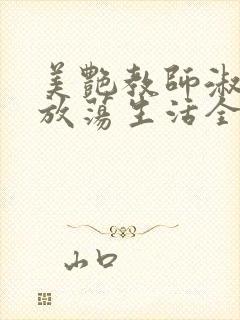 美艷教師淑
放蕩生活全
山口